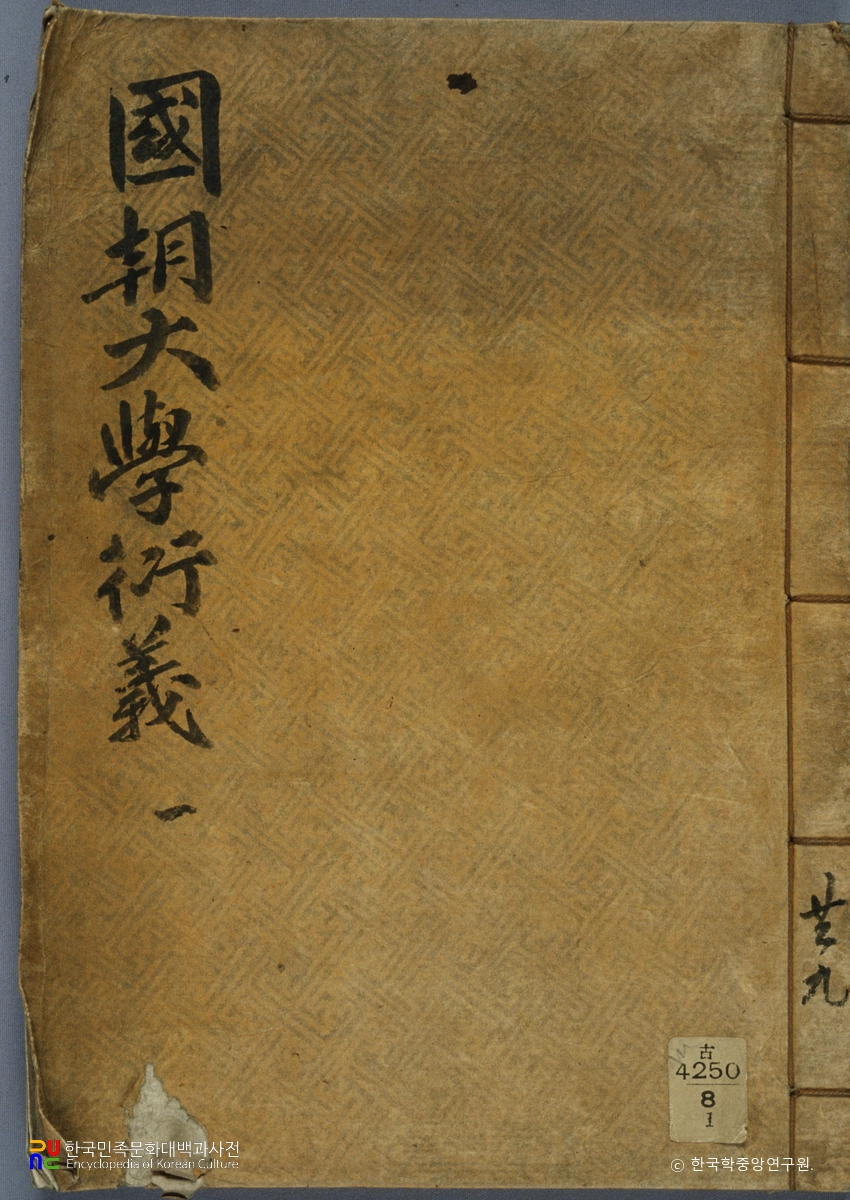 國朝大學衍義 一
共九
古
4250
8
1
한국민족문화대백과사전
Encyclopedia of Korean Culture
© 한국학중앙연구원.